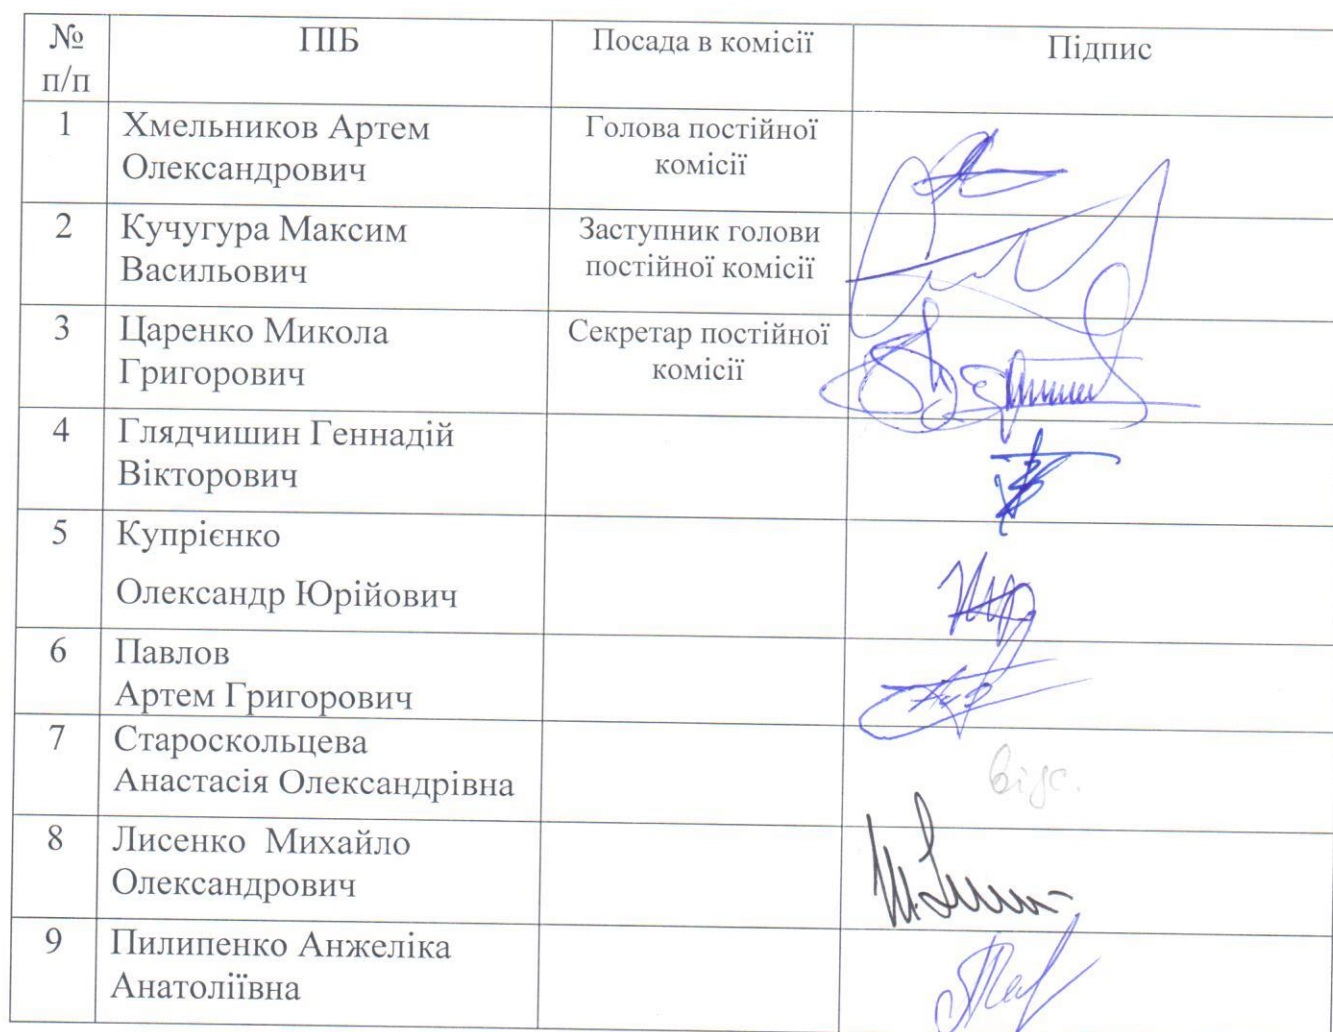 № п/п ПІБ Посада в комісії Підпис
1 Хмельников Артем Голова постійної
Олександрович комісії
2 Кучугура Максим Заступник голови
Васильович постійної комісії
3 Царенко Микола Секретар постійної
Григорович комісії
4 Глядчишин Геннадій
Вікторович
5 Купрієнко
Олександр Юрійович
6 Павлов
Артем Григорович
7 Староскольцева
Анастасія Олександрівна відс.
8 Лисенко Михайло
Олександрович
9 Пилипенко Анжеліка
Анатоліївна